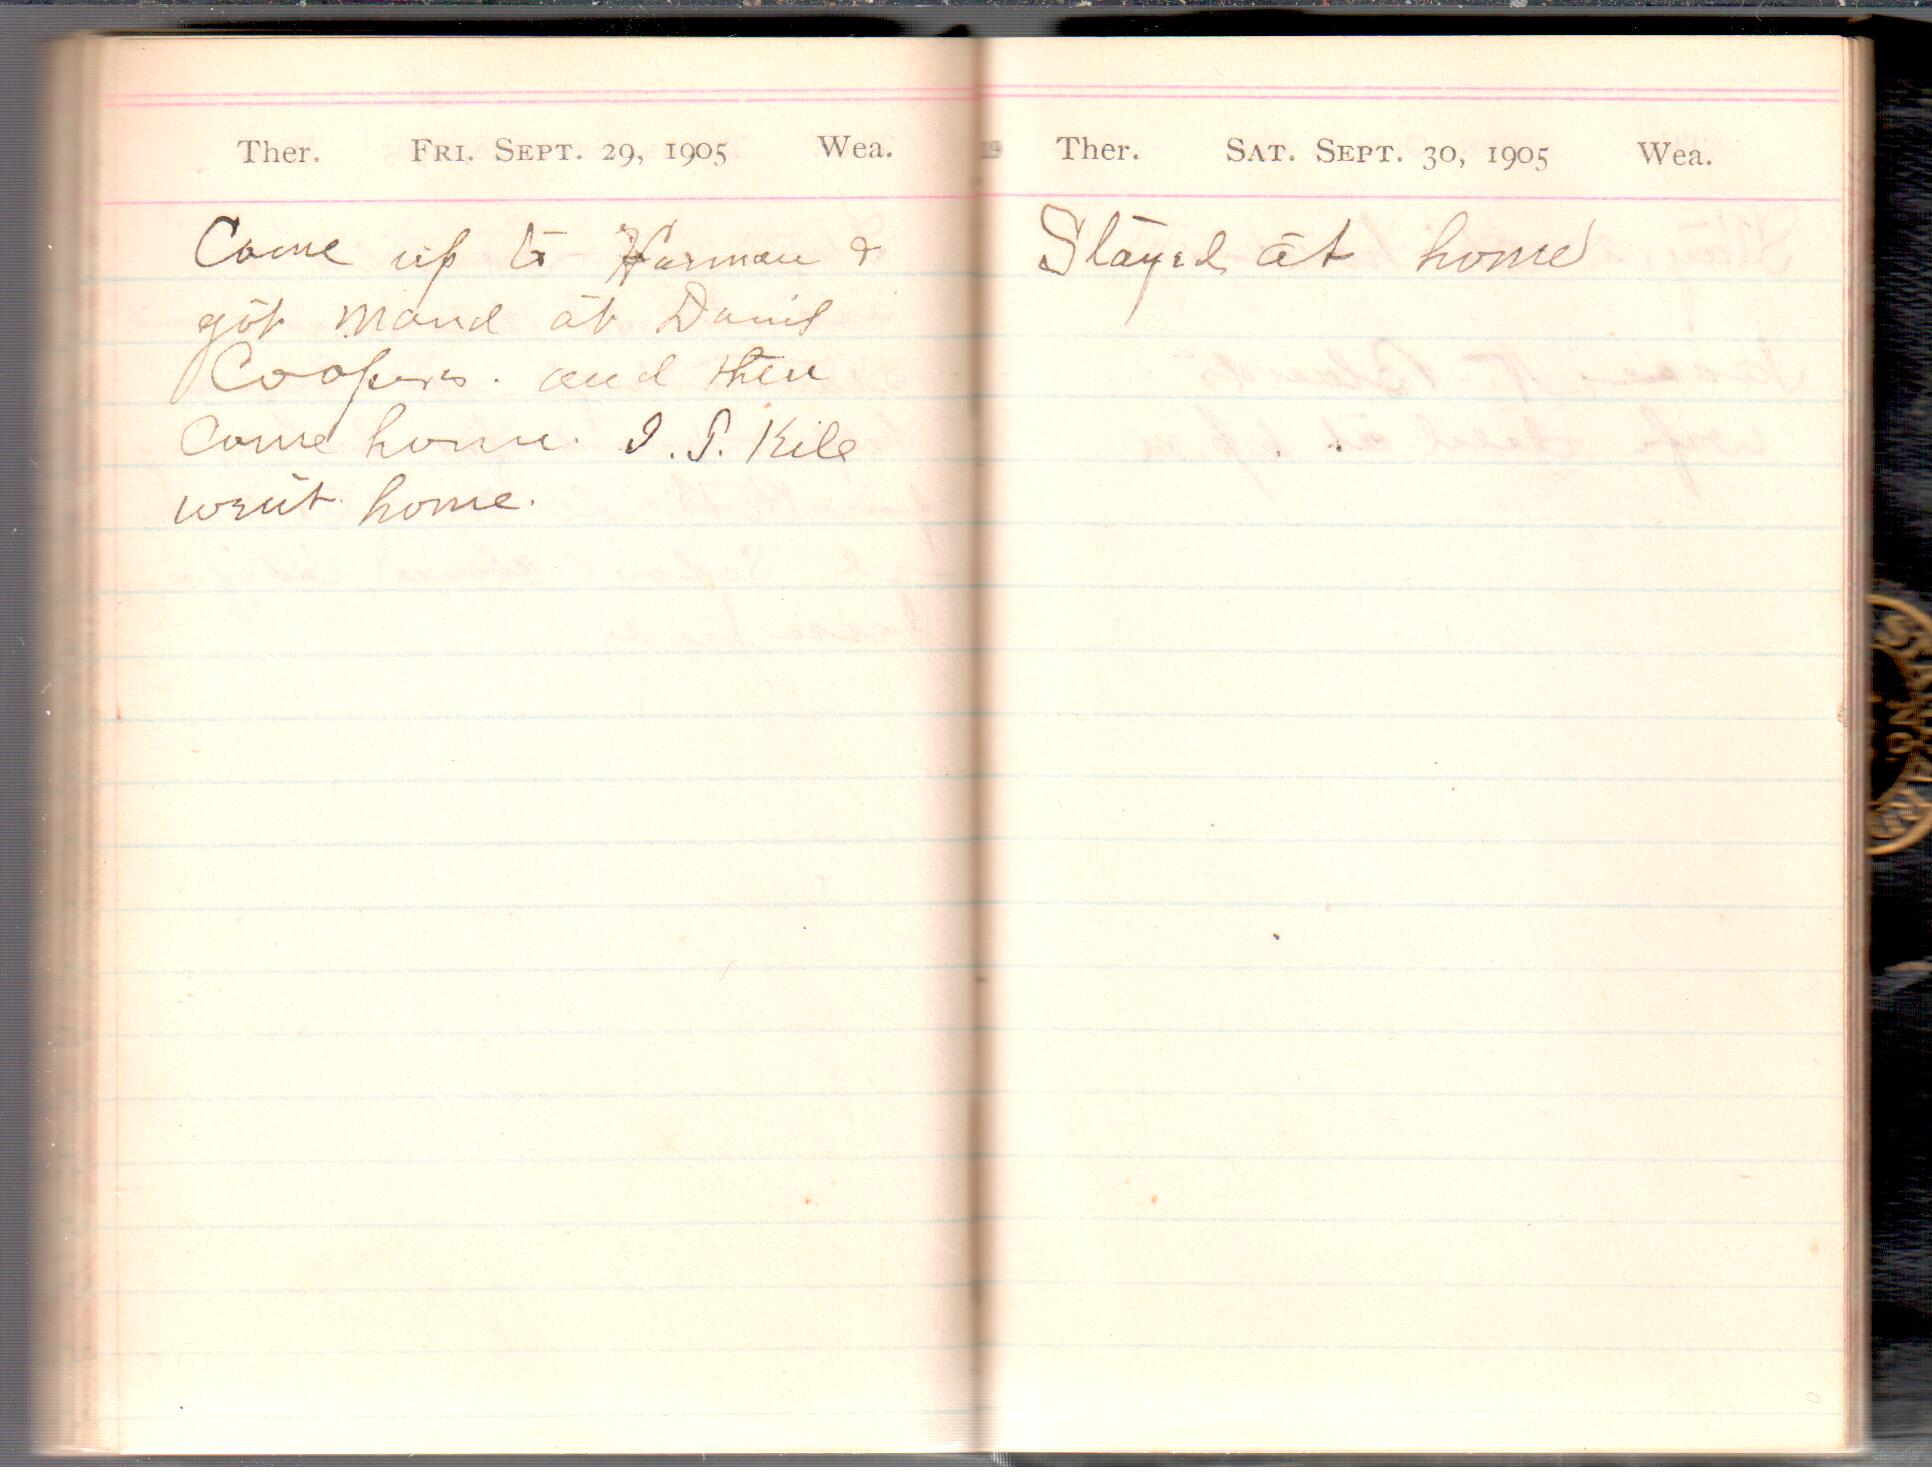 Ther. FRI. SEPT. 29, 1905 Wea.
Came up to Harman &
got Maud at Daniel
Coopers. and then
Came home. I. S. Kile
went home.
Ther. SAT. SEPT. 30, 1905 Wea.
Stayed at home